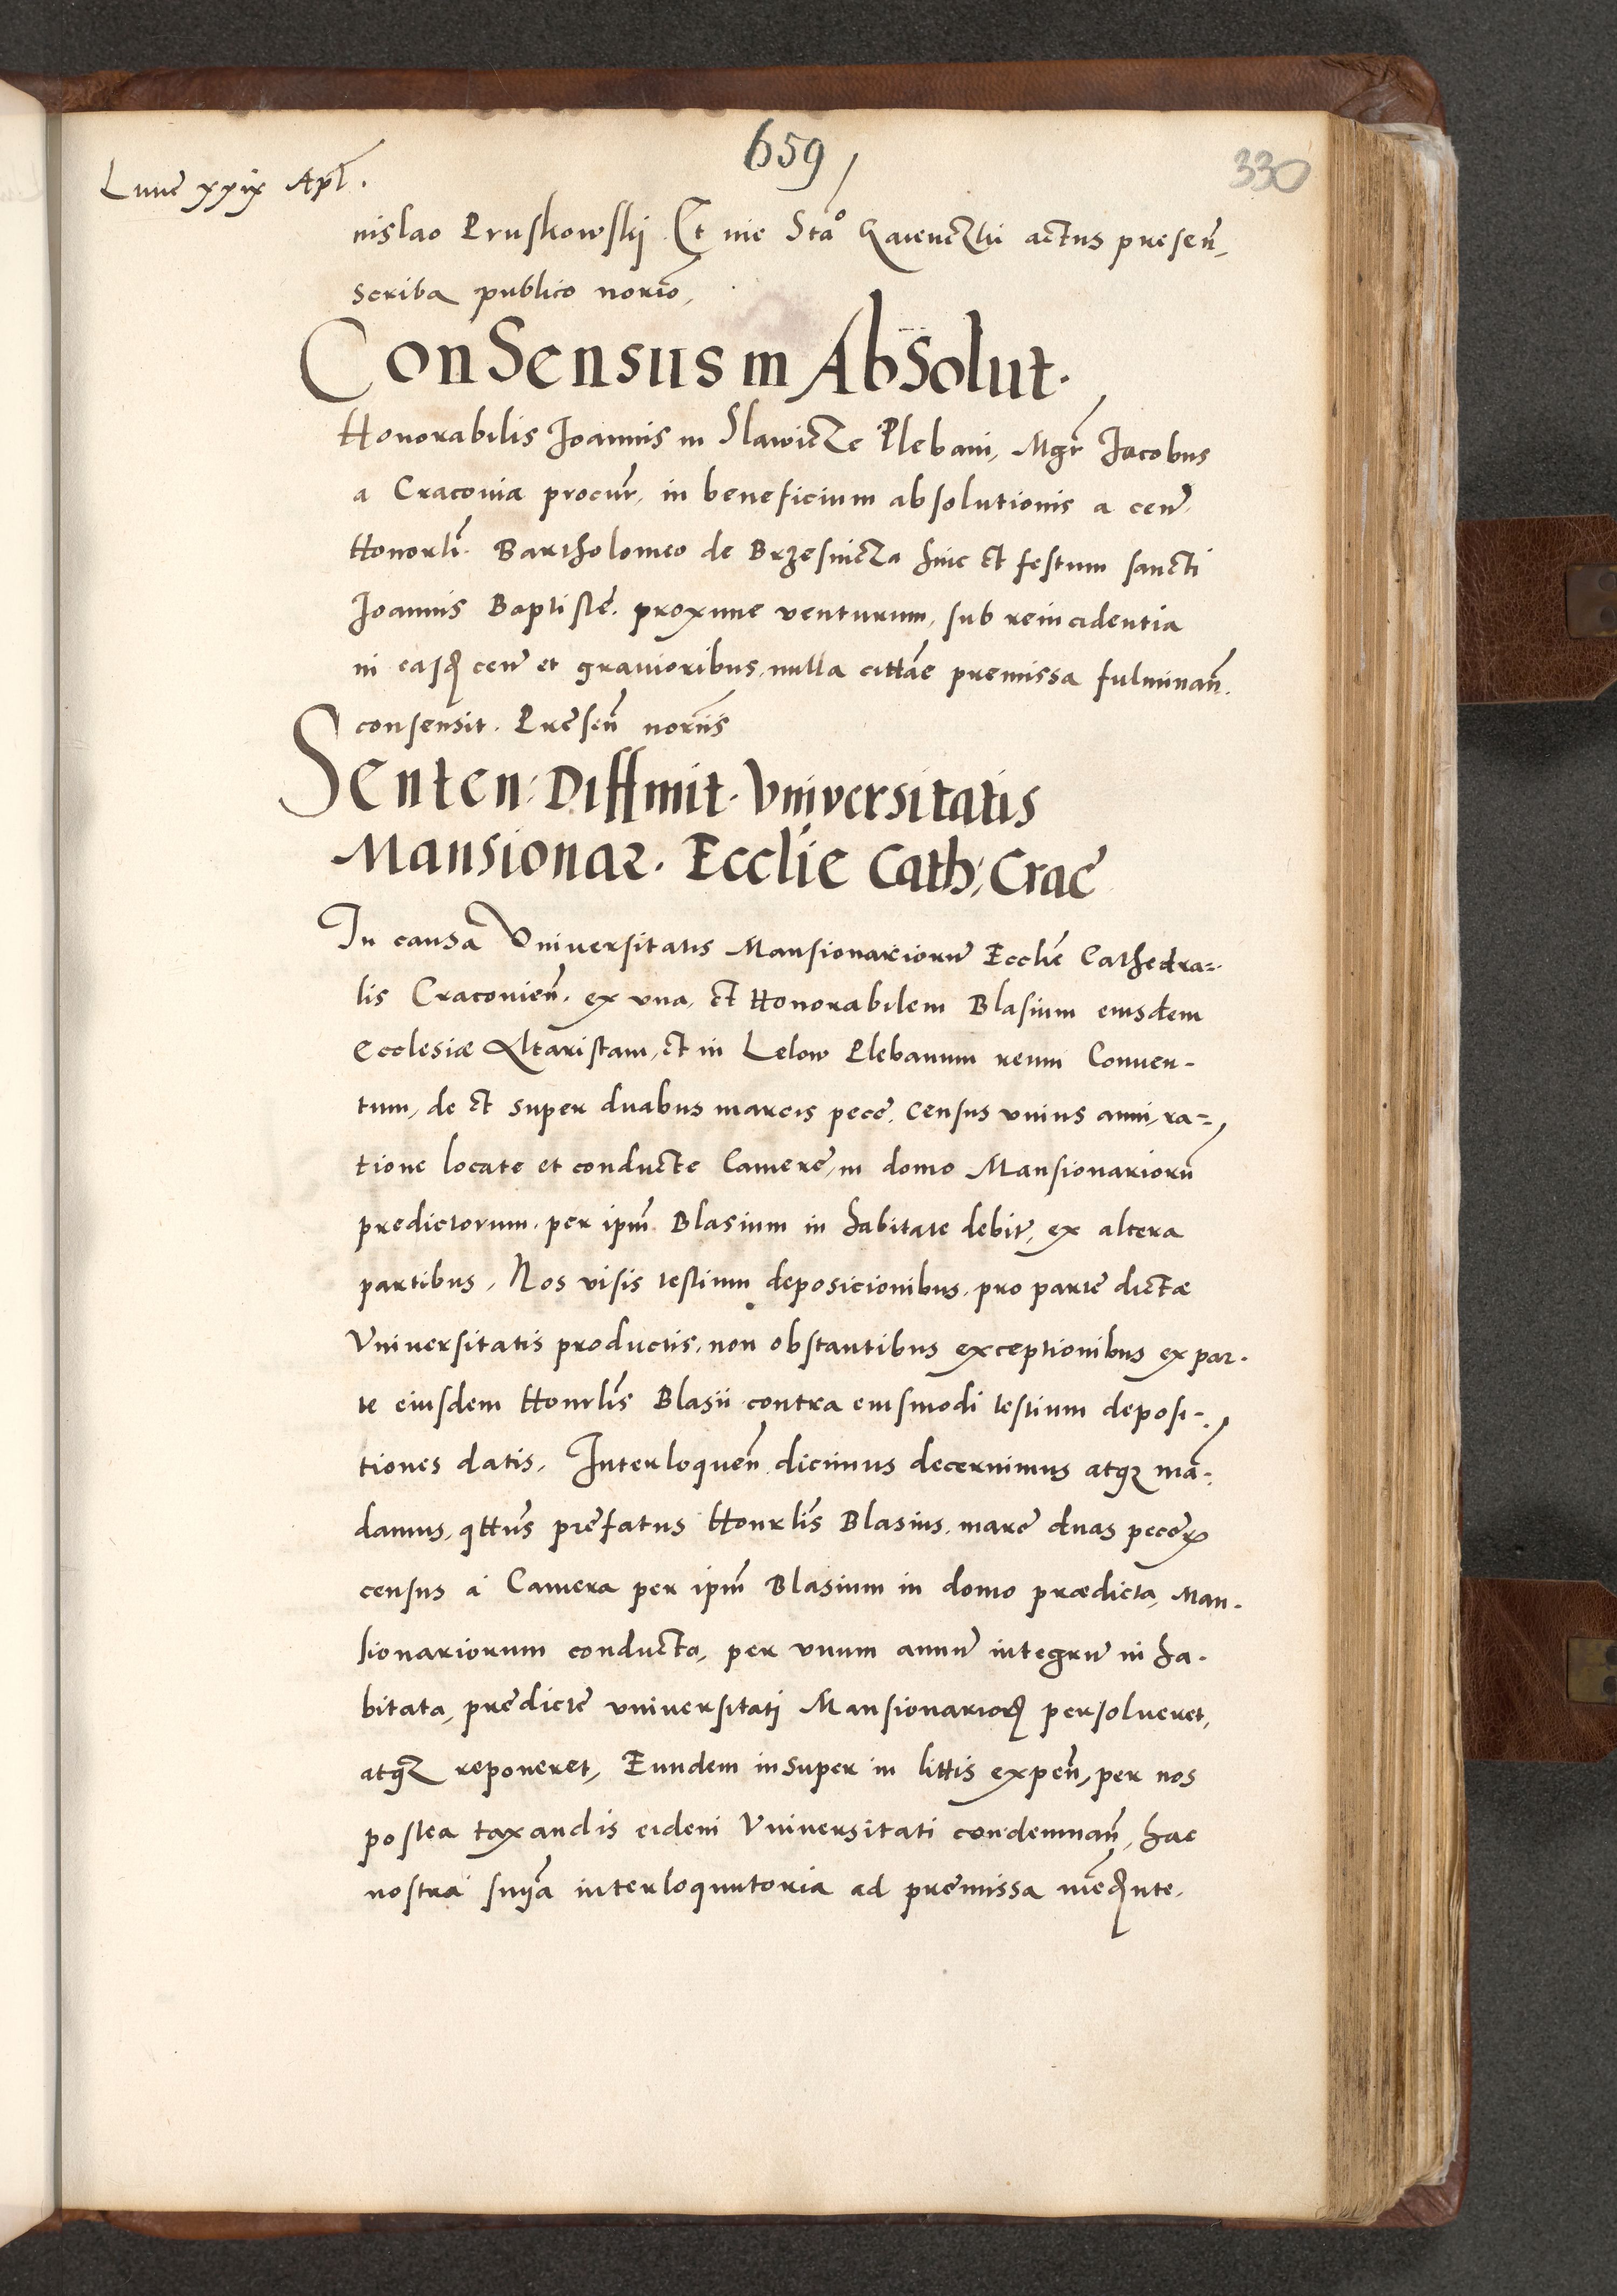 659
330
Lune xxix Apl.
nislao Pruskowskij Et me Stão Gaienczki actus presen̄,
scriba publico norio,
ConSensus in AbSolut.
Honorabilis Joannis in Slawicze Plebani, Mgr̄ Jacobus
a Craconia procur̄, in beneficium absolutionis a cen̄.
Honorli. Bartholomeo de Brzesnicza hinc et festum sancti
Joannis Baptistę. proxime venturum, sub reincidentia
in easdē cen̄ et grauioribus, nulla cittāe premissa fulminan̄.
consensit. Presen̄ noriis
Senten: Diffinit. Vniversitatis
Mansionar. Eccl̄ie Cath: Crac̄
In causa Vniuersitatis Mansionariorū Eccl̄ie Cathedra=
lis Craconien̄. ex vna, et Honorabilem Blasium eiusdem
Ecclesiæ Altaristam, et in Lelow Plebanum reum Conuen-
tum, de et super duabus marcis pecē. census vnius anni, ra=
tione locatę et conductę Camerę, in domo Mansionariorū
predictorum. per ipm̄ Blasium in habitatę debit̄, ex altera
partibus, Nos visis testium deposicionibus, pro parte dictæ
Vniuersitatis productis, non obstantibus exceptionibus ex par-
te eiusdem Honrlis Blasii contra eiusmodi testium deposi-
tiones datis, Interloquen̄. dicimus decernimus atq3 mā-
damus, qttn̄s prefatus Honrlis Blasius, marc̄ duas pece
census a Camera per ipm̄ Blasium in domo prædicta, Man-
sionariorum conducta, per vnum annū integrū in ha-
bitata, predictę vniuersitati Mansionariorꝝ persolueret,
atq3 reponeret, Eundem insuper in littis expen̄, per nos
postea taxandis eidem Vniuersitati condemnan̄, hac
nostra sn̄ia interloquutoria ad premissa mediānte.